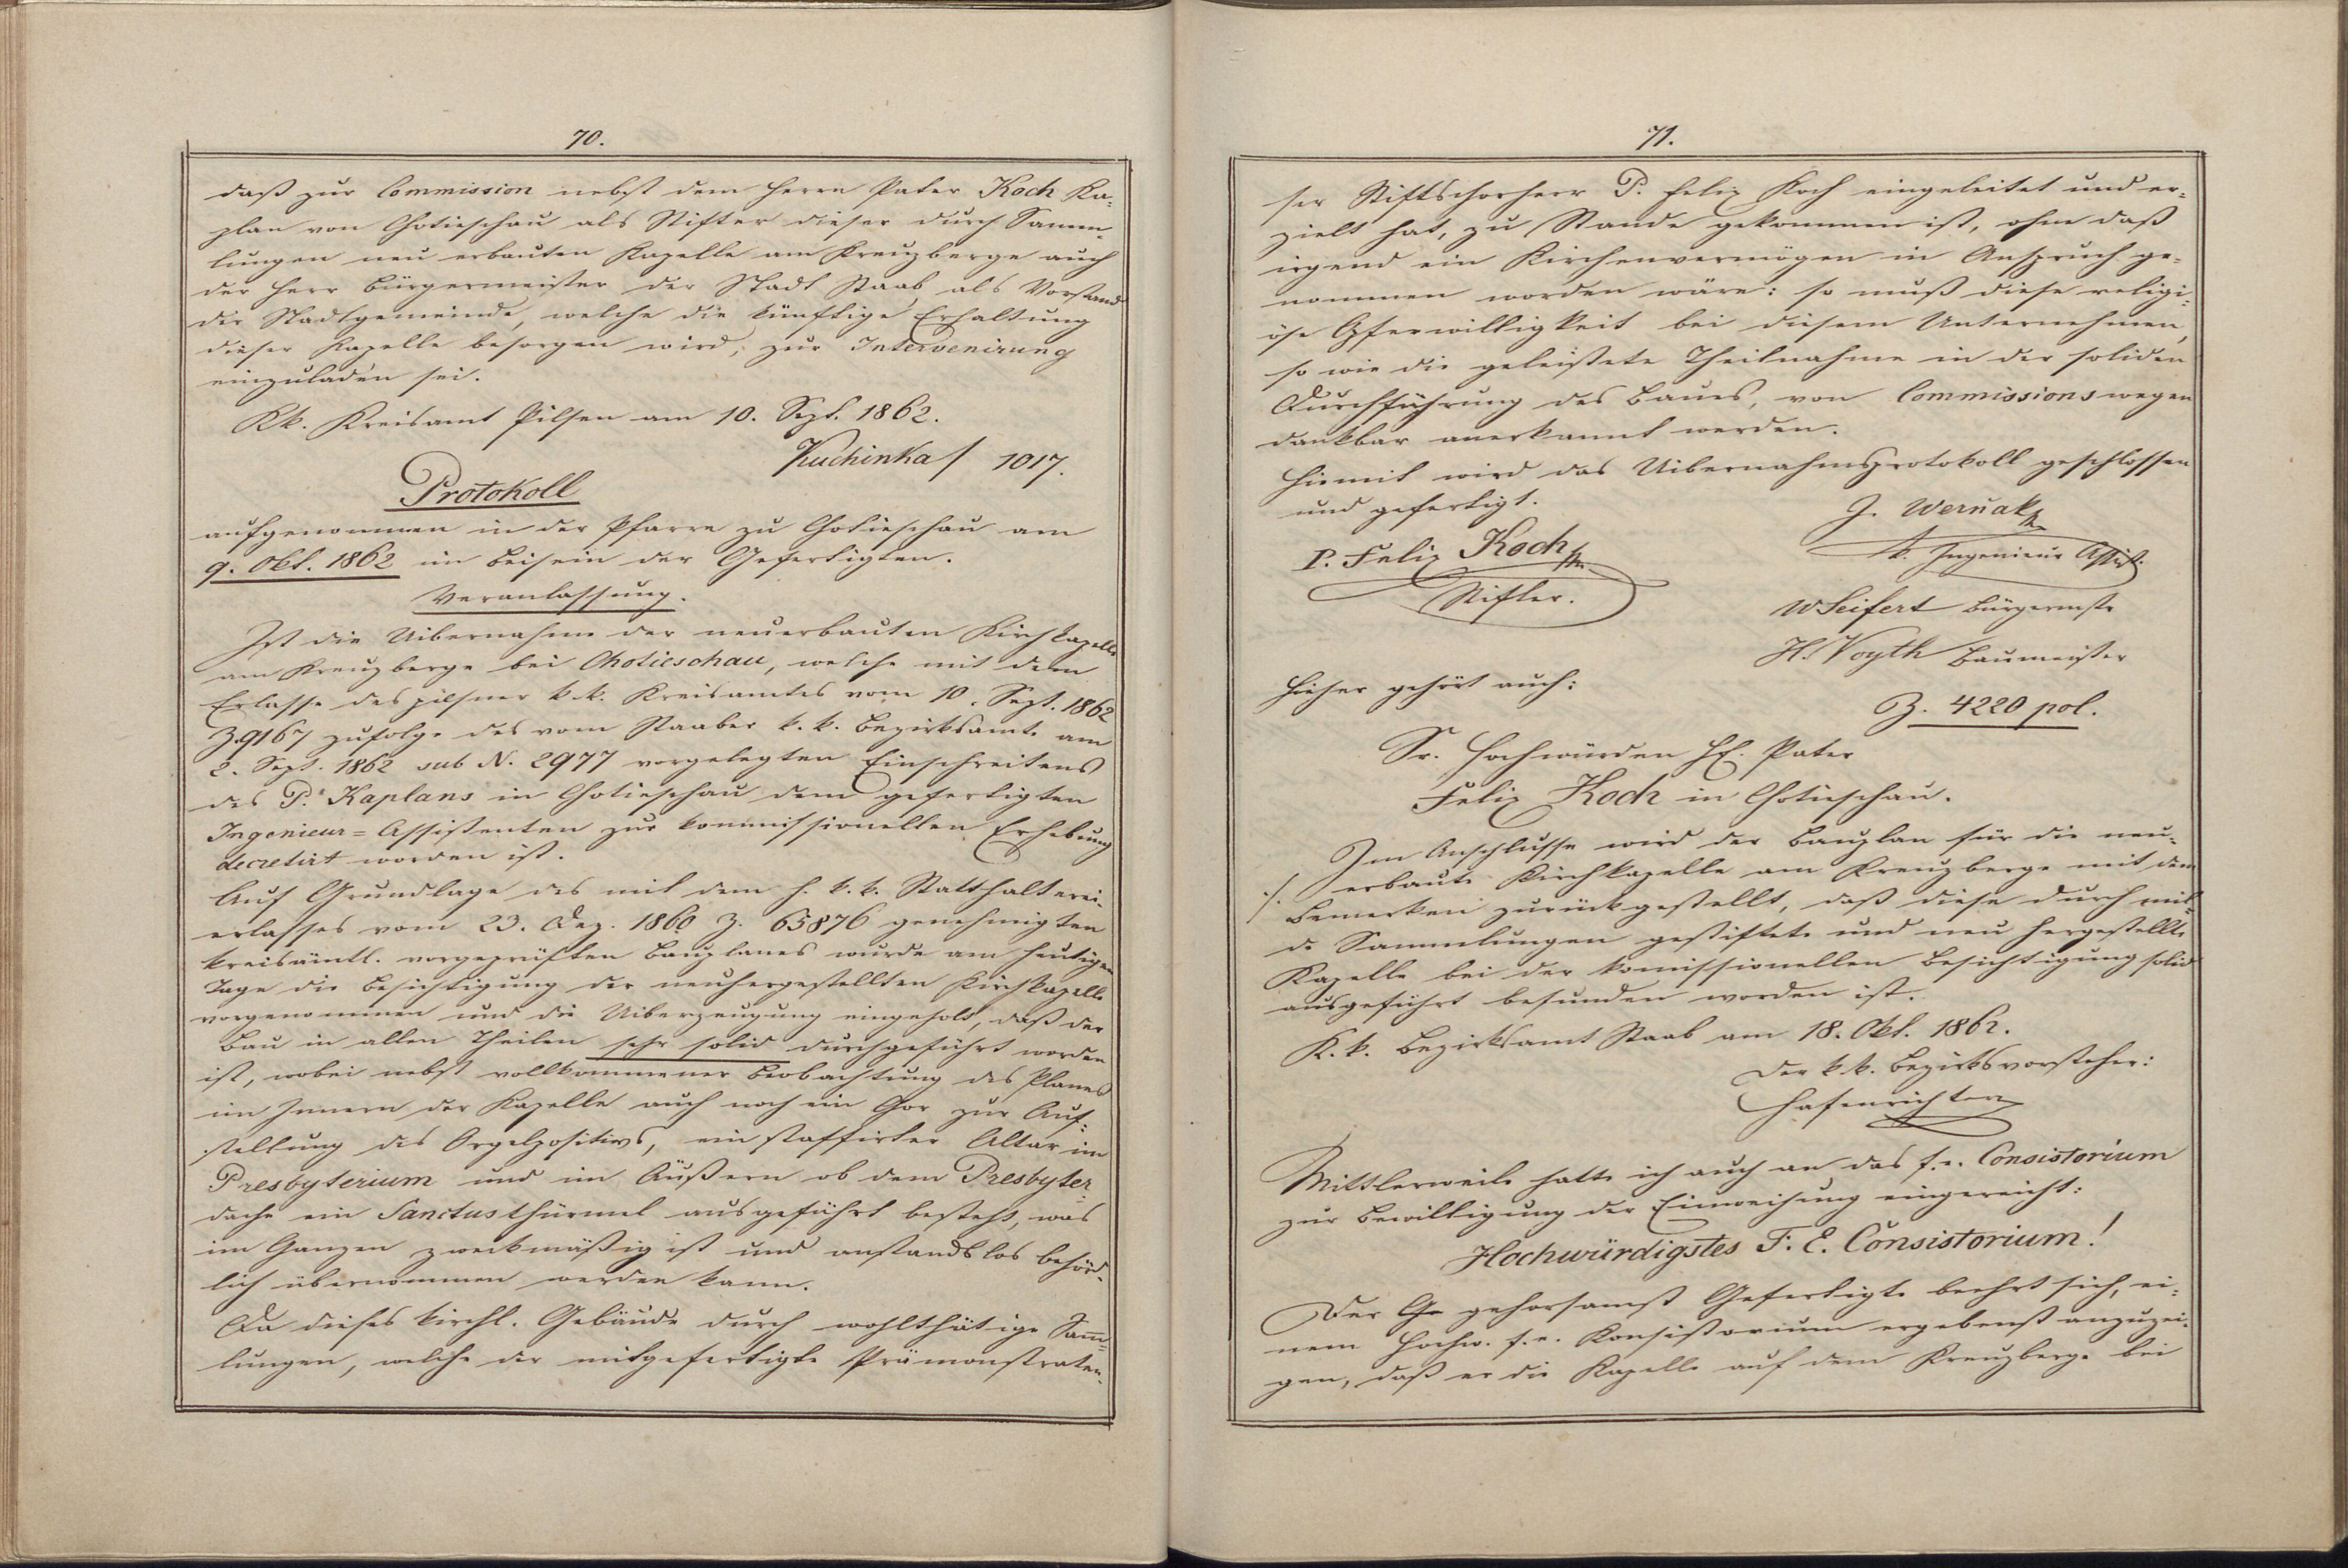 70.
daß zur Commission nebst dem Herrn Pater Koch Ka-
plan von Chotieschau als Stifter dieser durch Samm-
lungen neu erbauten Kapelle am Kreuzberge auch
der Herr Bürgermeister der Stadt Staab als Vorstand
der Stadtgemeinde, welche die künftige Erhaltung
dieser Kapelle besorgen wird, zur Intervenirung
einzuladen sei.
Kk. Kreisamt Pilsen am 10. Sept. 1862.
Kuchinka/ 1017.
Protokoll
aufgenommen in der Pfarre zu Chotieschau am
9. Okt. 1862 im Beisein der Gefertigten.
Veranlassung.
Ist die Uibernahme der neuerbauten Kirchkapelle
am Kreuzberge bei Chotieschau, welche mit dem
Erlasse des pilsner k. k. Kreisamtes vom 10. Sept. 1862
Z. 9167 zufolge des vom Staaber k. k. Bezirksamte am
2. Sept. 1862 sub N. 2977 vorgelegten Einschreitens
des P. Kaplans in Chotieschau dem gefertigten
Ingenieur=Assistenten zur kommissionellen Erhebung
decretirt worden ist.
Auf Grundlage des mit dem h. k. k. Statthalterei-
erlasses vom 23. Dez. 1860 Z. 65876 genehmigten
kreisämtl. vorgeprüften Bauplanes wurde am heutigen
Tage die Besichtigung der neuhergestellten Kirchkapelle
vorgenommen und die Uiberzeugung eingeholt, daß der
Bau in allen Theilen sehr solid durchgeführt worden
ist, wobei nebst vollkommener Beobachtung des Planes
im Innern der Kapelle auch noch ein Chor zur Auf-
stellung des Orgelpositivs, ein staffirter Altar im
Presbyterium und im Äußern ob dem Presbyter-
dache ein Sanctusthürmel ausgeführt besteht, was
im Ganzen zweckmäßig ist und anstandslos behörd-
lich übernommen werden kann.
Da dieses kirchl. Gebäude durch wohlthätige Samm-
lungen, welche der mitgefertigte Prämonstraten-
71.
ser Stiftschorherr P. Felix Koch eingeleitet und er-
zielt hat, zu Stande gekommen ist, ohne daß
irgend ein Kirchenvermögen in Anspruch ge-
nommen worden wäre: so muß diese religi-
öse Opferwilligkeit bei diesem Unternehmen,
so wie die geleistete Theilnahme in der soliden
Durchführung des Baues, von Commissionswegen
dankbar anerkannt werden.
Hiemit wird das Uibernahmsprotokoll geschlossen
und gefertigt.
J. Wernak
P. Felix Koch
k. Ingenieur Assist.
Stifter.
W Seifert Bürgermstr
H. Voyth Baumeister
Hieher gehört auch:
Z. 4220 pol.
Sr. Hochwürden H. Pater
Felix Koch in Chotieschau.
Im Anschlusse wird der Bauplan für die neu-
./. erbaute Kirchkapelle am Kreuzberge mit dem
Bemerken zurückgestellt, daß diese durch mil-
de Sammlungen gestiftete und neu hergestellte
Kapelle bei der komissionellen Besichtigung solid
ausgeführt befunden worden ist.
K. k. Bezirksamt Staab am 18. Okt. 1862.
Der k k. Bezirksvorsteher:
Hafenrichter
Mittlerweile hatte ich auch an das f. e. Consistorium
zur Bewilligung der Einweihung eingereicht:
Hochwürdigstes F. E. Consistorium!
Der Ge gehorsamst Gefertigte beehrt sich, ei-
nem Hochw. f. e. Konsistorium ergebenst anzuzei-
gen, daß er die Kapelle auf dem Kreuzberge bei